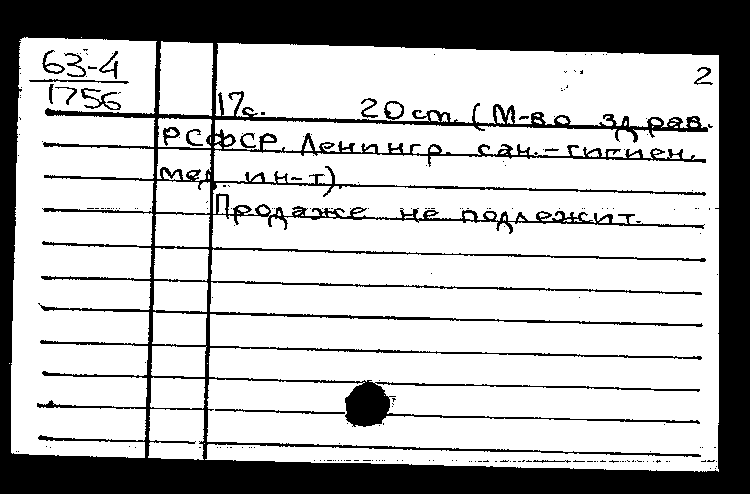 63-4
1756
2
17с. 20 cm. (М-во здрав.
РСФСР. Ленингр. сан.-гигиен.
мед. ин-т).
Продаже не подлежит.